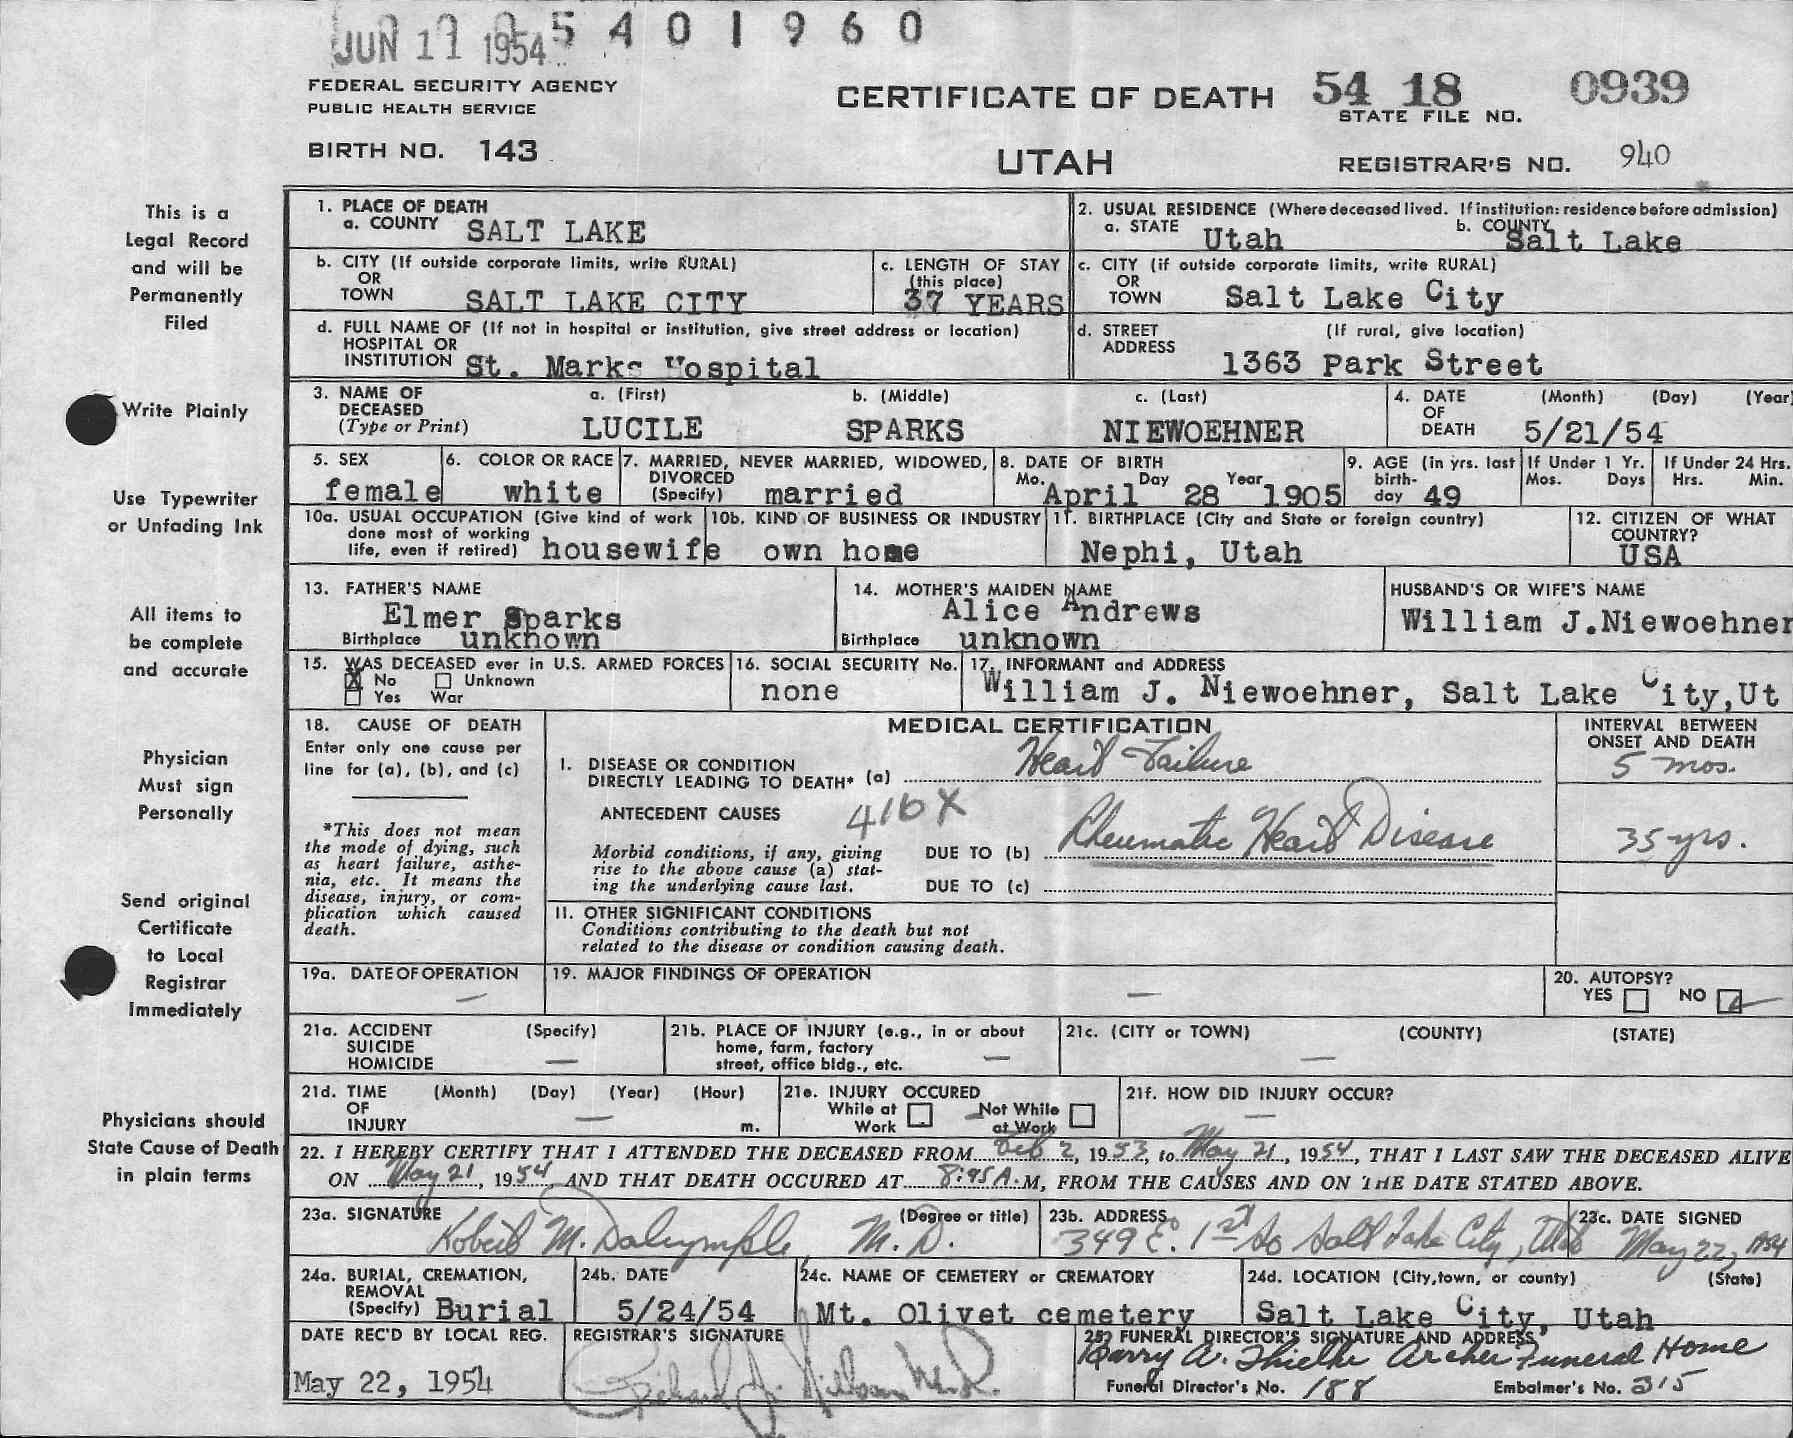 JUN 11 1954 5401960
FEDERAL SECURITY AGENCY
PUBLIC HEALTH SERVICE
CERTIFICATE OF DEATH
54 18 0939
STATE FILE NO.
BIRTH NO. 143
UTAH
REGISTRAR'S NO. 940
This is a
Legal Record
and will be
Permanently
Filed
Write Plainly
Use Typewriter
or Unfading Ink
All items to
be complete
and accurate
Physician
Must sign
Personally
Send original
Certificate
to Local
Registrar
Immediately
Physicians should
State Cause of Death
in plain terms
1. PLACE OF DEATH
a. COUNTY SALT LAKE
2. USUAL RESIDENCE (Where deceased lived. If institution: residence before admission)
a. STATE Utah b. COUNTY Salt Lake
b. CITY (If outside corporate limits, write RURAL)
OR
TOWN SALT LAKE CITY
c. LENGTH OF STAY
(this place)
37 YEARS
c. CITY (if outside corporate limits, write RURAL)
OR
TOWN Salt Lake City
d. FULL NAME OF (If not in hospital or institution, give street address or location)
HOSPITAL OR
INSTITUTION St. Marks Hospital
d. STREET (If rural, give location)
ADDRESS
1363 Park Street
3. NAME OF a. (First) b. (Middle) c. (Last)
DECEASED
(Type or Print) LUCILE SPARKS NIEWOEHNER
4. DATE (Month) (Day) (Year)
OF
DEATH 5/21/54
5. SEX
female
6. COLOR OR RACE
white
7. MARRIED, NEVER MARRIED, WIDOWED,
DIVORCED
(Specify) married
8. DATE OF BIRTH
Mo. April Day 28 Year 1905
9. AGE (in yrs. last
birth-
day 49
If Under 1 Yr.
Mos. Days
If Under 24 Hrs.
Hrs. Min.
10a. USUAL OCCUPATION (Give kind of work
done most of working
life, even if retired) housewife
10b. KIND OF BUSINESS OR INDUSTRY
own home
11. BIRTHPLACE (City and State or foreign country)
Nephi, Utah
12. CITIZEN OF WHAT
COUNTRY?
USA
13. FATHER'S NAME
Elmer Sparks
Birthplace unknown
14. MOTHER'S MAIDEN NAME
Alice Andrews
Birthplace unknown
HUSBAND'S OR WIFE'S NAME
William J.Niewoehner
15. WAS DECEASED ever in U.S. ARMED FORCES
X No Unknown
Yes War
16. SOCIAL SECURITY No.
none
17. INFORMANT and ADDRESS
William J. Niewoehner, Salt Lake City,Ut
18. CAUSE OF DEATH
Enter only one cause per
line for (a), (b), and (c)
*This does not mean
the mode of dying, such
as heart failure, asthe-
nia, etc. It means the
disease, injury, or com-
plication which caused
death.
MEDICAL CERTIFICATION
INTERVAL BETWEEN
ONSET AND DEATH
I. DISEASE OR CONDITION
DIRECTLY LEADING TO DEATH* (a) Heart Failure 5 mos.
ANTECEDENT CAUSES 416X
Morbid conditions, if any, giving
rise to the above cause (a) stat-
ing the underlying cause last.
DUE TO (b) Rheumatic Heart Disease 35 yrs.
DUE TO (c)
II. OTHER SIGNIFICANT CONDITIONS
Conditions contributing to the death but not
related to the disease or condition causing death.
19a. DATE OF OPERATION
—
19. MAJOR FINDINGS OF OPERATION
—
20. AUTOPSY?
YES NO
21a. ACCIDENT (Specify)
SUICIDE
HOMICIDE —
21b. PLACE OF INJURY (e.g., in or about
home, farm, factory
street, office bldg., etc. —
21c. (CITY or TOWN) (COUNTY) (STATE)
—
21d. TIME (Month) (Day) (Year) (Hour)
OF —
INJURY m.
21e. INJURY OCCURED
While at Not While
Work at Work
21f. HOW DID INJURY OCCUR?
—
22. I HEREBY CERTIFY THAT I ATTENDED THE DECEASED FROM Feb 2, 1953, to May 21, 1954, THAT I LAST SAW THE DECEASED ALIVE
ON May 21, 1954, AND THAT DEATH OCCURED AT 8:45 A.M, FROM THE CAUSES AND ON THE DATE STATED ABOVE.
23a. SIGNATURE (Degree or title)
Robert M. Dalrymple, M.D.
23b. ADDRESS
349 E. 1st So Salt Lake City, Utah
23c. DATE SIGNED
May 22, 1954
24a. BURIAL, CREMATION,
REMOVAL
(Specify) Burial
24b. DATE
5/24/54
24c. NAME OF CEMETERY or CREMATORY
Mt. Olivet cemetery
24d. LOCATION (City,town, or county) (State)
Salt Lake City, Utah
DATE REC'D BY LOCAL REG.
May 22, 1954
REGISTRAR'S SIGNATURE
25. FUNERAL DIRECTOR'S SIGNATURE AND ADDRESS
Archer Funeral Home
Funeral Director's No. 188 Embalmer's No. 315